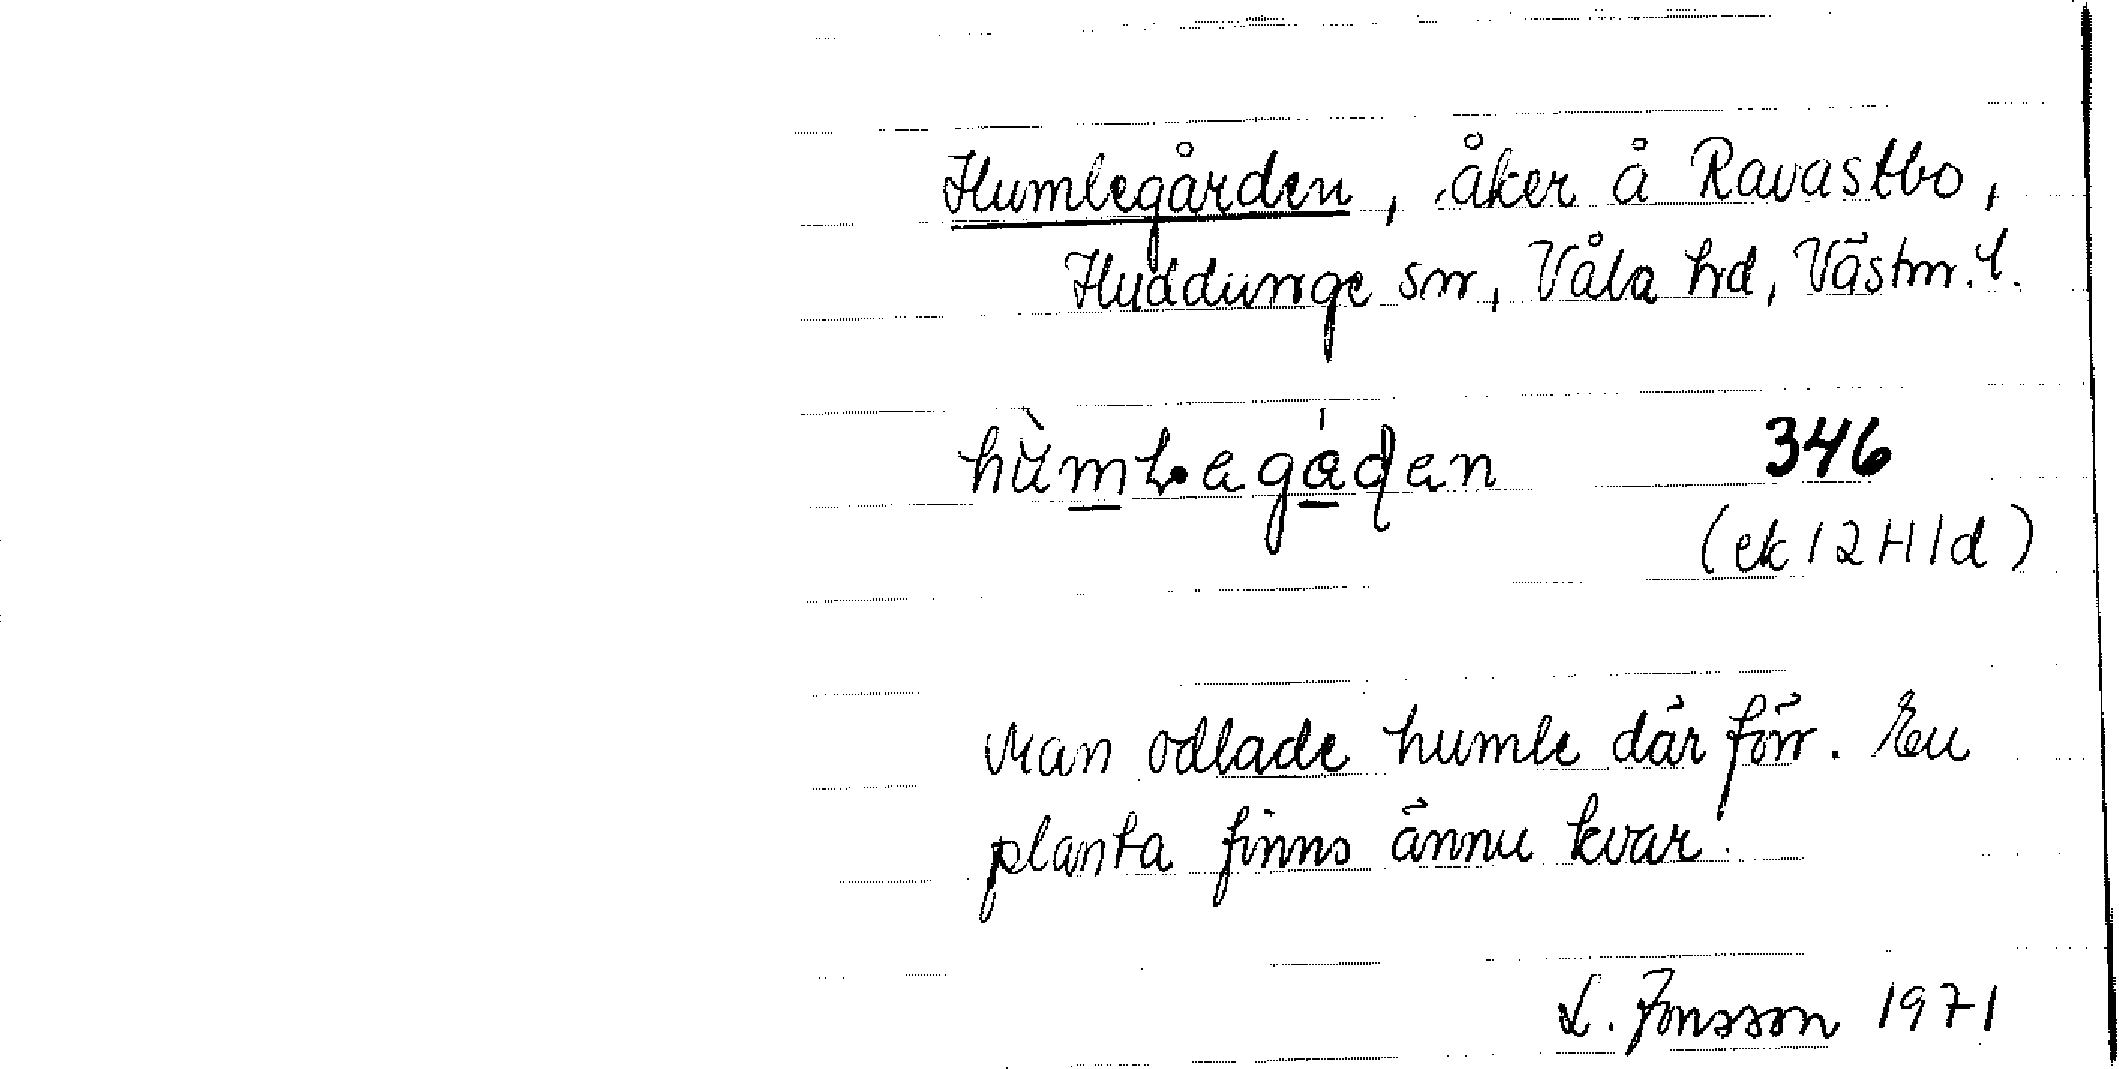 Humlegården, åker å Ravastbo,
Huddunge sn, Våla hd, Västm. l.
346
(ek 12H1d)
Man odlade humle där förr. En
planta finns ännu kvar.
L. Jonsson 1971